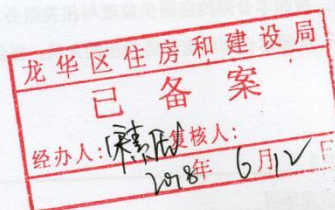 龙华区住房和建设局
已备案
经办人: 复核人:
2018年6月12日